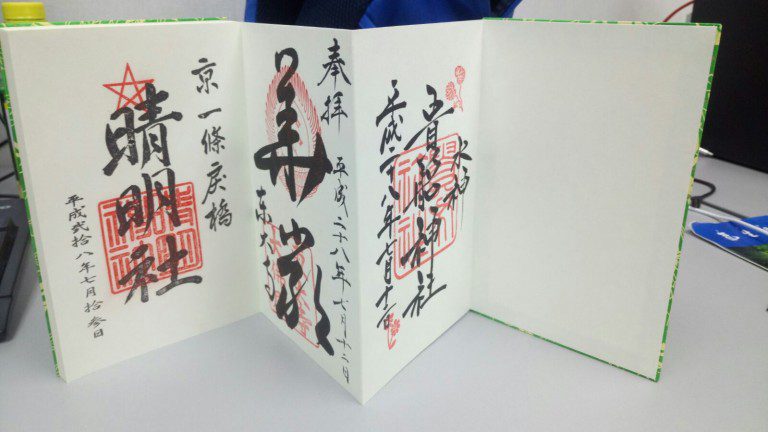 水神
貴船神社
平成二十八年七月十二日
奉拝
平成二十八年七月十二日
華厳
東大寺
京一條戻橋
晴明社
平成貳拾八年七月拾参日